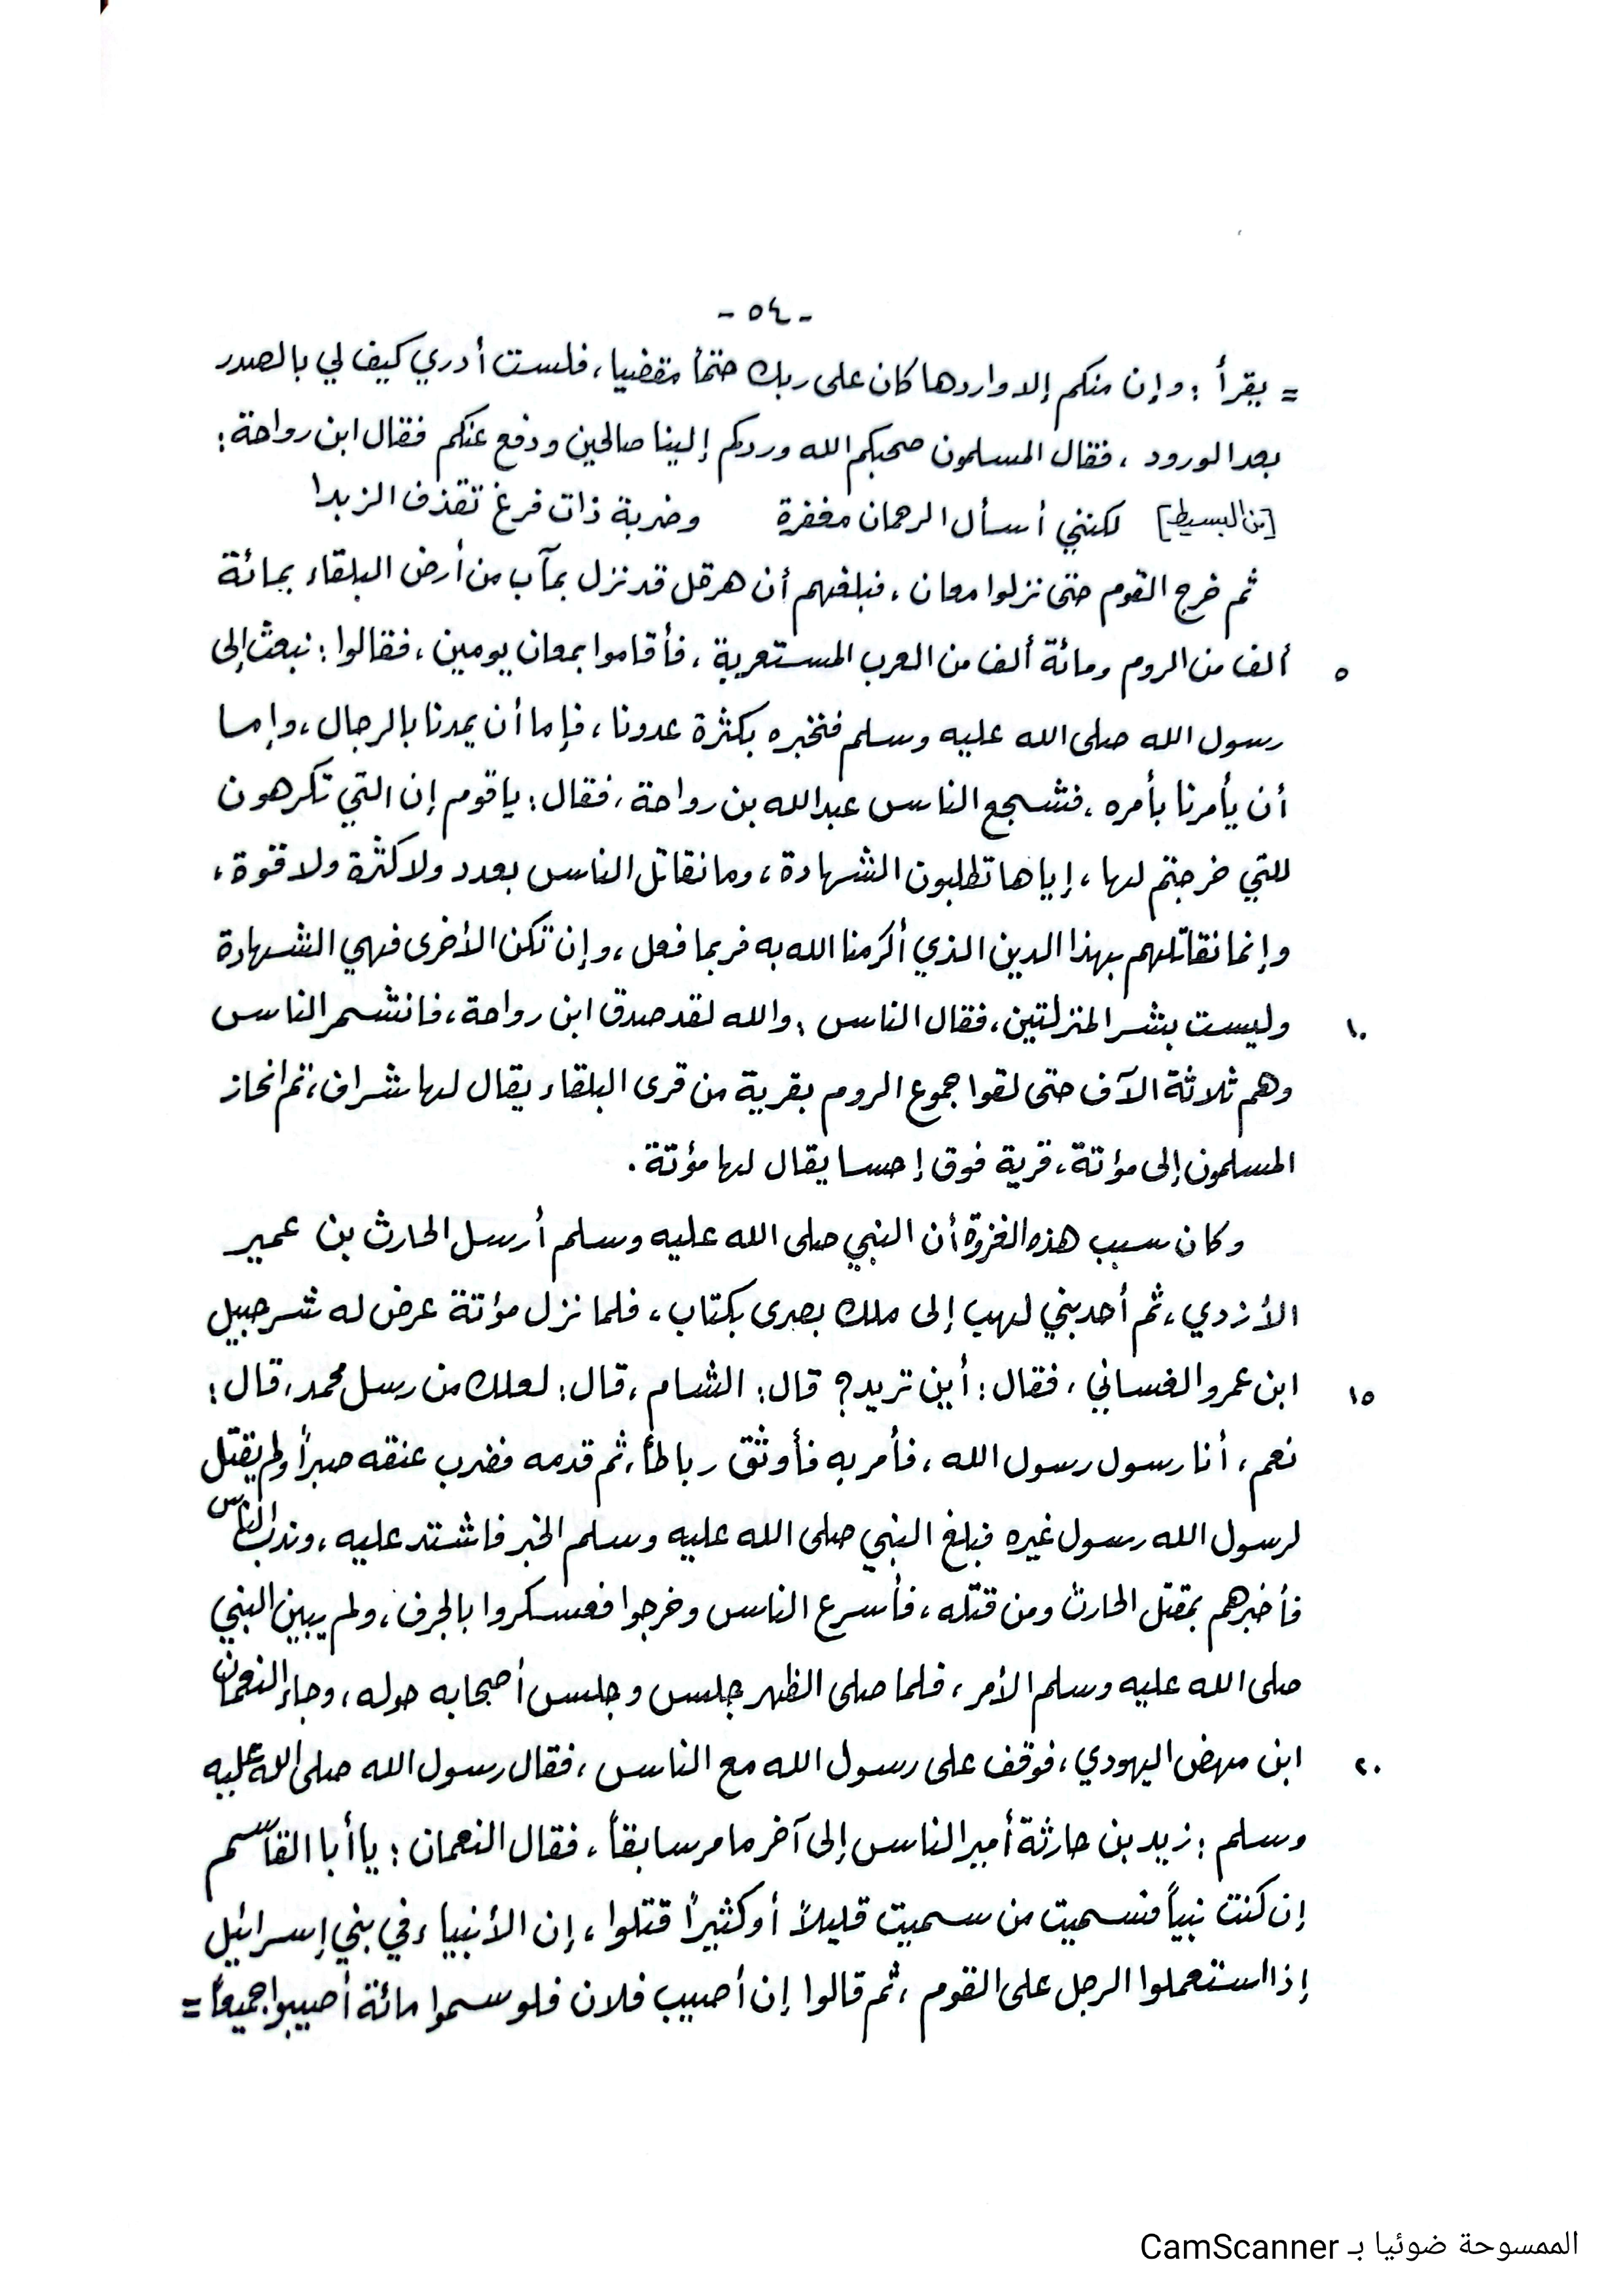 - ٥٤ -
= يقرأ : وإن منكم إلا واردها كان على ربك حتماً مقضيا ، فلست أدري كيف لي بالصدر
بعد الورود ، فقال المسلمون صحبكم الله وردكم إلينا صالحين ودفع عنكم فقال ابن رواحة :
[من البسيط] لكنني أسأل الرحمان مغفرة وضربة ذات فرغ تقذف الزبدا
ثم خرج القوم حتى نزلوا معان ، فبلغهم أن هرقل قد نزل بمآب من أرض البلقاء بمائة
٥ ألف من الروم ومائة ألف من العرب المستعربة ، فأقاموا بمعان يومين ، فقالوا : نبعث إلى
رسول الله صلى الله عليه وسلم فنخبره بكثرة عدونا ، فإما أن يمدنا بالرجال ، وإما
أن يأمرنا بأمره ، فشجع الناس عبدالله بن رواحة ، فقال : ياقوم إن التي تكرهون
للتي خرجتم لها ، إياها تطلبون الشهادة ، وما نقاتل الناس بعدد ولا كثرة ولا قوة ،
وإنما نقاتلهم بهذا الدين الذي أكرمنا الله به فربما فعل ، وإن تكن الأخرى فهي الشهادة
١٠ وليست بشر المنزلتين ، فقال الناس : والله لقد صدق ابن رواحة ، فانشمر الناس
وهم ثلاثة الآف حتى لقوا جموع الروم بقرية من قرى البلقاء يقال لها شراف ، ثم انحاز
المسلمون إلى مؤتة ، قرية فوق إحسا يقال لها مؤتة .
وكان سبب هذه الغزوة أن النبي صلى الله عليه وسلم أرسل الحارث بن عمير
الأزدي ، ثم أحد بني لهب إلى ملك بصرى بكتاب ، فلما نزل مؤتة عرض له شرحبيل
١٥ ابن عمرو الغساني ، فقال : أين تريد ؟ قال : الشام ، قال : لعلك من رسل محمد ، قال :
نعم ، أنا رسول رسول الله ، فأمر به فأوثق رباطاً ، ثم قدمه فضرب عنقه صبراً ولم يقتل
لرسول الله رسول غيره فبلغ النبي صلى الله عليه وسلم الخبر فاشتد عليه ، وندب الناس
فأخبرهم بمقتل الحارث ومن قتله ، فأسرع الناس وخرجوا فعسكروا بالجرف ، ولم يبين النبي
صلى الله عليه وسلم الأمر ، فلما صلى الظهر جلس وجلس أصحابه حوله ، وجاء النعمان
٢٠ ابن مهض اليهودي ، فوقف على رسول الله مع الناس ، فقال رسول الله صلى الله عليه
وسلم : زيد بن حارثة أمير الناس إلى آخر ما مر سابقاً ، فقال النعمان : يا أبا القاسم
إن كنت نبياً فسميت من سميت قليلاً أو كثيراً قتلوا ، إن الأنبياء في بني إسرائيل
إذا استعملوا الرجل على القوم ، ثم قالوا إن أصيب فلان فلو سموا مائة أصيبوا جميعاً =
الممسوحة ضوئيا بـ CamScanner